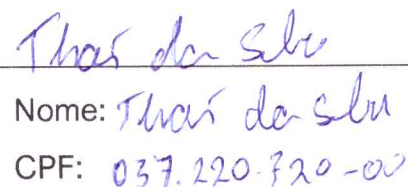 Thaí da Silva
Nome: Thaí da Silva
CPF: 037.220.720-00